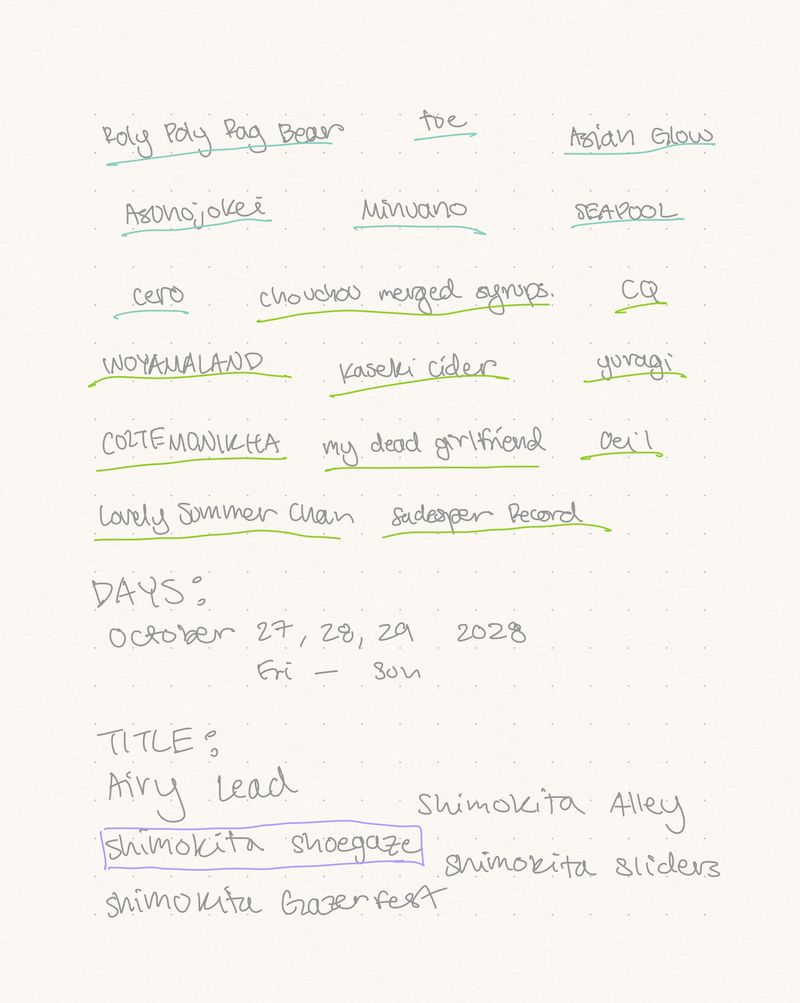 Roly Poly Rag Bear toe Asian Glow
Asunojokei Minuano SEAPOOL
cero chouchou merged syrups. CQ
WOYAMALAND kaseki cider yuragi
COLTEMONIKHA my dead girlfriend Oeil
Lovely Summer Chan sadesper Record
DAYS:
October 27, 28, 29 2028
Fri — Sun
TITLE:
Airy Lead
Shimokita Alley
shimokita shoegaze
shimokita sliders
shimokita Gazerfest